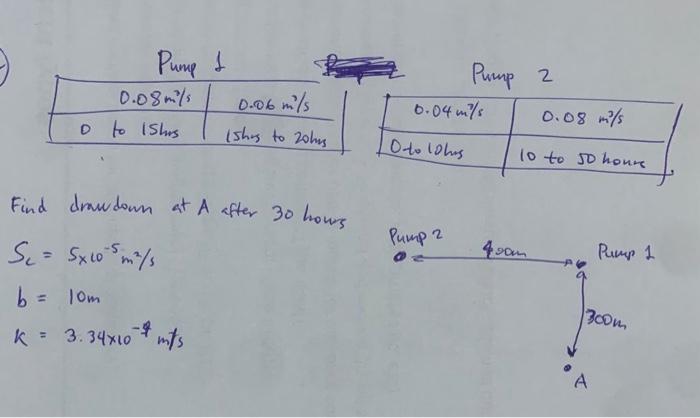 Pump 1
0.08 m³/s 0.06 m³/s
0 to 15hrs 15hrs to 20hrs
Pump 2
0.04 m³/s 0.08 m³/s
0 to 10hrs 10 to 50 hours
Find drawdown at A after 30 hours
Sc = 5x10⁻⁵ m²/s
b = 10m
K = 3.34x10⁻⁴ m/s
Pump 2 400m Pump 1
300m
A